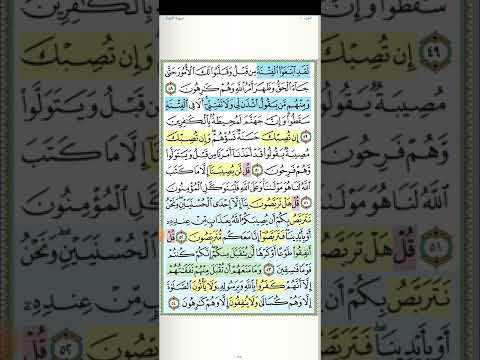 لَقَدِ ٱبۡتَغَوُاْ ٱلۡفِتۡنَةَ مِن قَبۡلُ وَقَلَّبُواْ لَكَ ٱلۡأُمُورَ حَتَّىٰ
جَآءَ ٱلۡحَقُّ وَظَهَرَ أَمۡرُ ٱللَّهِ وَهُمۡ كَٰرِهُونَ ٤٨
وَمِنۡهُم مَّن يَقُولُ ٱئۡذَن لِّي وَلَا تَفۡتِنِّيٓۚ أَلَا فِي ٱلۡفِتۡنَةِ
سَقَطُواْۗ وَإِنَّ جَهَنَّمَ لَمُحِيطَةُۢ بِٱلۡكَٰفِرِينَ
٤٩ إِن تُصِبۡكَ حَسَنَةٞ تَسُؤۡهُمۡۖ وَإِن تُصِبۡكَ
مُصِيبَةٞ يَقُولُواْ قَدۡ أَخَذۡنَآ أَمۡرَنَا مِن قَبۡلُ وَيَتَوَلَّواْ
وَّهُمۡ فَرِحُونَ ٥٠ قُل لَّن يُصِيبَنَآ إِلَّا مَا كَتَبَ
ٱللَّهُ لَنَا هُوَ مَوۡلَىٰنَاۚ وَعَلَى ٱللَّهِ فَلۡيَتَوَكَّلِ ٱلۡمُؤۡمِنُونَ
٥١ قُلۡ هَلۡ تَرَبَّصُونَ بِنَآ إِلَّآ إِحۡدَى ٱلۡحُسۡنَيَيۡنِۖ وَنَحۡنُ
نَتَرَبَّصُ بِكُمۡ أَن يُصِيبَكُمُ ٱللَّهُ بِعَذَابٖ مِّنۡ عِندِهِۦٓ
أَوۡ بِأَيۡدِينَاۖ فَتَرَبَّصُوٓاْ إِنَّا مَعَكُم مُّتَرَبِّصُونَ ٥٢ قُلۡ
أَنفِقُواْ طَوۡعًا أَوۡ كَرۡهٗا لَّن يُتَقَبَّلَ مِنكُمۡ إِنَّكُمۡ كُنتُمۡ
قَوۡمٗا فَٰسِقِينَ ٥٣ وَمَا مَنَعَهُمۡ أَن تُقۡبَلَ مِنۡهُمۡ نَفَقَٰتُهُمۡ
إِلَّآ أَنَّهُمۡ كَفَرُواْ بِٱللَّهِ وَبِرَسُولِهِۦ وَلَا يَأۡتُونَ ٱلصَّلَوٰةَ
إِلَّا وَهُمۡ كُسَالَىٰ وَلَا يُنفِقُونَ إِلَّا وَهُمۡ كَٰرِهُونَ ٥٤